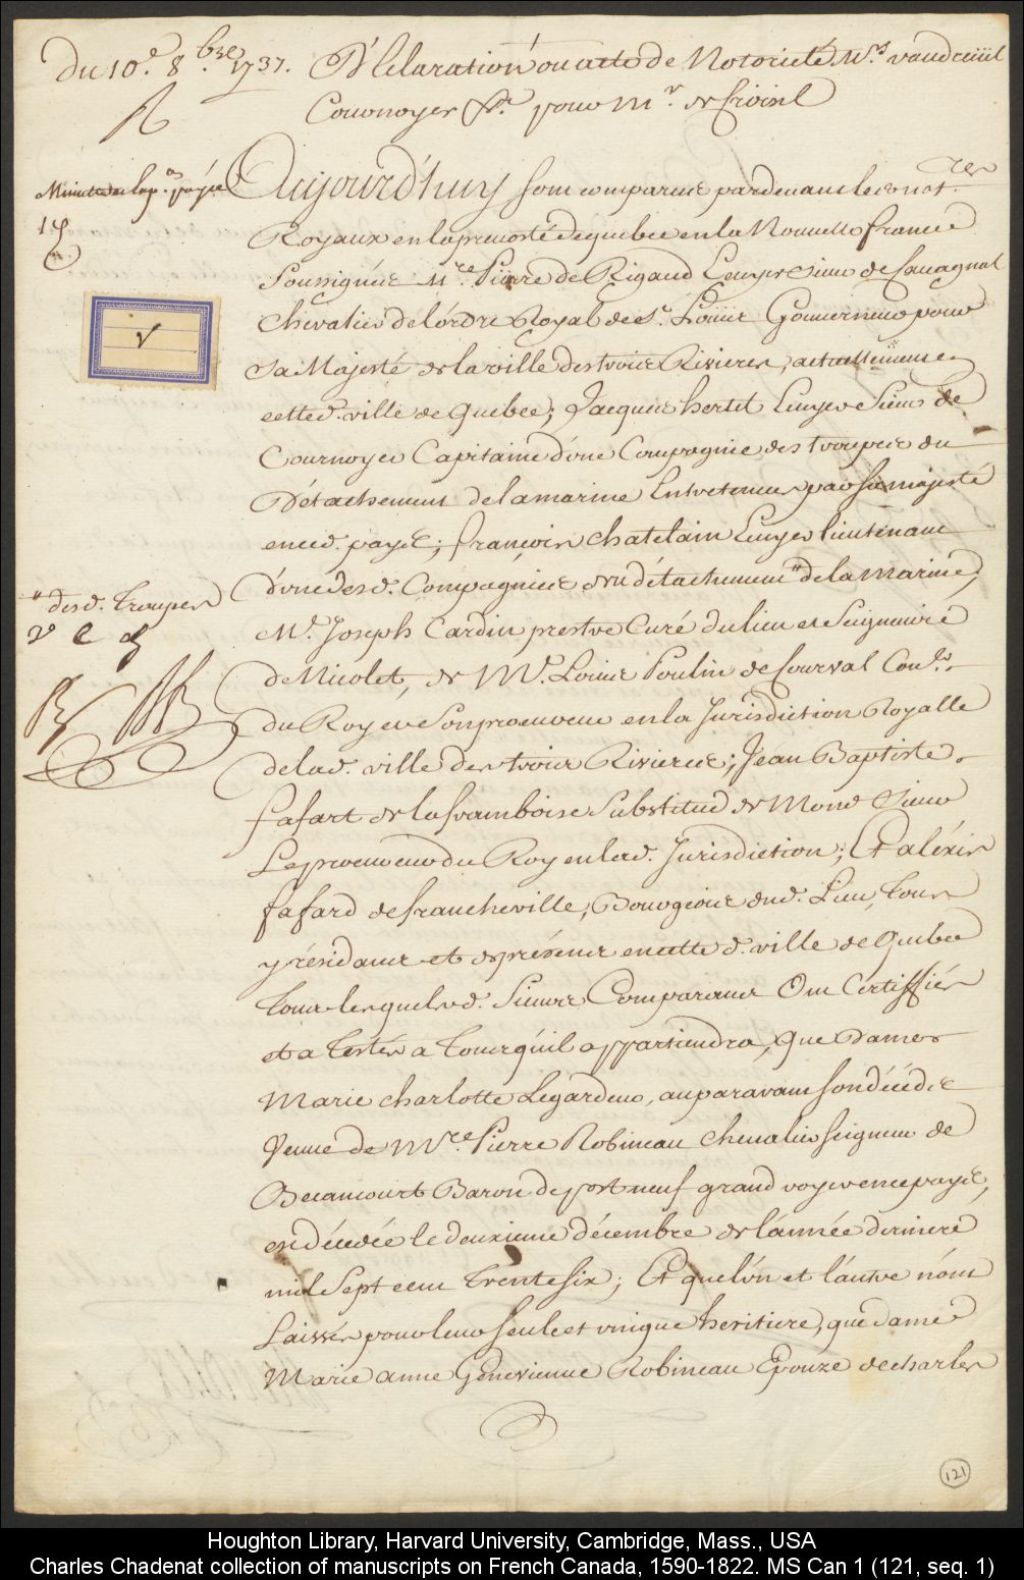 Du 10.e 8.bre 1737. Déclaration ou acte de Notorieté M.rs vaudreüil
Cournoyer &.a pour M.r de Croisil
Minutte en pap.er payée
Aujourd'huy sont comparus pardevant les not.res
Royaux en la prevosté de quebec en la Nouvelle france
Soussignés M.re Pierre de Rigaud Ecuyer Sieur de Cavagnal
Chevalier de l'ordre Royal de S.t Louis Gouverneur pour
Sa Majesté de la ville des trois Rivieres, actuellement en
cette d. ville de Quebec; Jacques hertel Ecuyer Sieur de
Cournoyer Capitaine d'une Compagnie des trouppes du
Détachement de la marine Entretenues par sa majesté
en ce d. payis; françois chatelain Ecuyer lieutenant
d'une des d. Compagnies du détachement " de la marine,
" des d. Trouppes
M.r Joseph Cardin prestre Curé du lieu et Seigneurie
de Nicolet, de M.e Louis Poulin de Courval Con.er
du Roy et Son procureur en la Jurisdiction Royalle
de la d. ville des trois Rivieres; Jean Baptiste
fafart de laframboise Substitud de Mond. Sieur
Le procureur du Roy en la d. Jurisdiction; Et aléxis
fafard de francheville, Bourgeois dud. Lieu, tous
y résidants et de présent en cette d. ville de Quebec
Tous lesquels d. Sieurs Comparants Ont Certiffiés
et a testés a tous qu'il appartiendra, Que Dame
Marie charlotte Legardeur, auparavant son décéds
Veuve de M.re Pierre Robineau chevalier seigneur de
Becancourt Baron de portneuf grand voyer en ce payis,
est décédée le deuxieme décembre de l'année derniere
mil Sept cent Trente six; Et que l'un et l'autre n'ont
Laissés pour leur seule et unique heritiere, que dame
Marie anne Génevieuve Robineau Epouze de charles
121
Houghton Library, Harvard University, Cambridge, Mass., USA
Charles Chadenat collection of manuscripts on French Canada, 1590-1822. MS Can 1 (121, seq. 1)